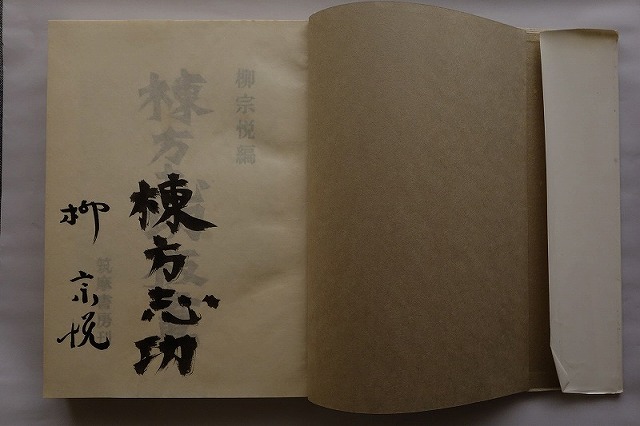 柳宗悦編
棟方志功
筑摩書房刊
棟方志功
柳 宗悦